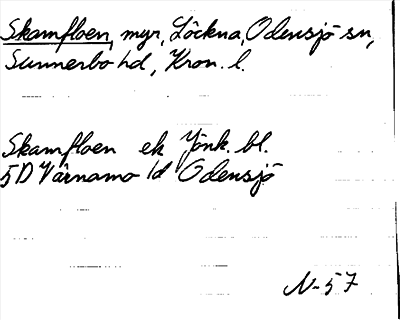 Skamfloen, myr, Löckna, Odensjö sn,
Sunnerbo hd, Kron. l.
Skamfloen ek Jönk. bl.
5D Värnamo 1d Odensjö
N-57